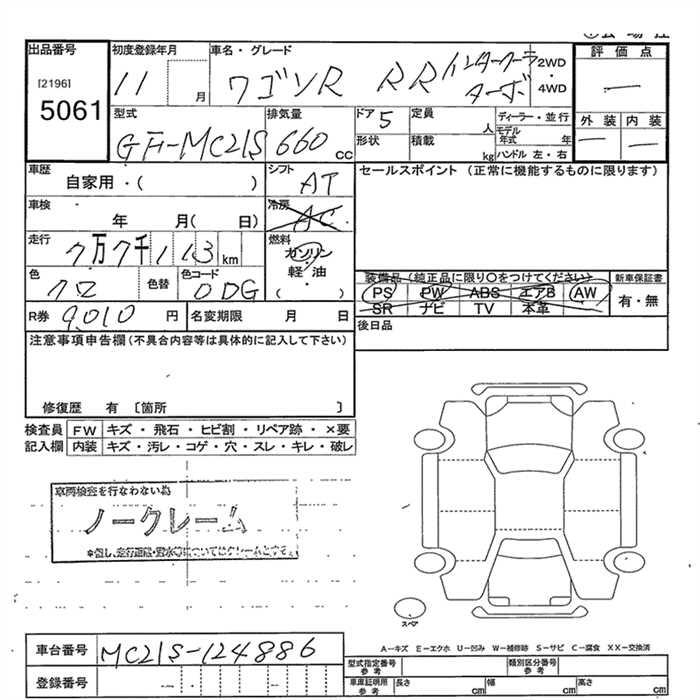 出品番号
[2196]
5061
初度登録年月
11 月
車名・グレード
ワゴンR RR インタークーラーターボ
2WD・4WD
評価点
—
外装 内装
— —
型式
GF-MC21S
排気量
660 cc
ドア 5
形状
定員 人
積載 kg
ディーラー・並行
モデル年式 年
ハンドル 左・右
車歴
自家用・( )
シフト
AT
セールスポイント (正常に機能するものに限ります)
車検
年 月( 日)
冷房
AC
走行
7万7千113km
燃料
ガソリン・軽・油
( )
色
クロ
色替
色コード
0DG
装備品(純正品に限り○をつけてください)
PS PW ABS エアB AW
SR ナビ TV 本革
新車保証書
有・無
R券 9,010 円
名変期限 月 日
後日品
注意事項申告欄(不具合内容等は具体的に記入して下さい)
修復歴 有 [箇所 ]
検査員記入欄
FW キズ・飛石・ヒビ割・リペア跡・×要
内装 キズ・汚レ・コゲ・穴・スレ・キレ・破レ
車両検査を行なわない為
ノークレーム
スペア
A－キズ E－エクボ U－凹み W－補修跡 S－サビ C－腐食 XX－交換済
車台番号
MC21S-124886
登録番号
型式指定番号 参考
類別区分番号 参考
車庫証明用 参考
長さ cm 幅 cm 高さ cm